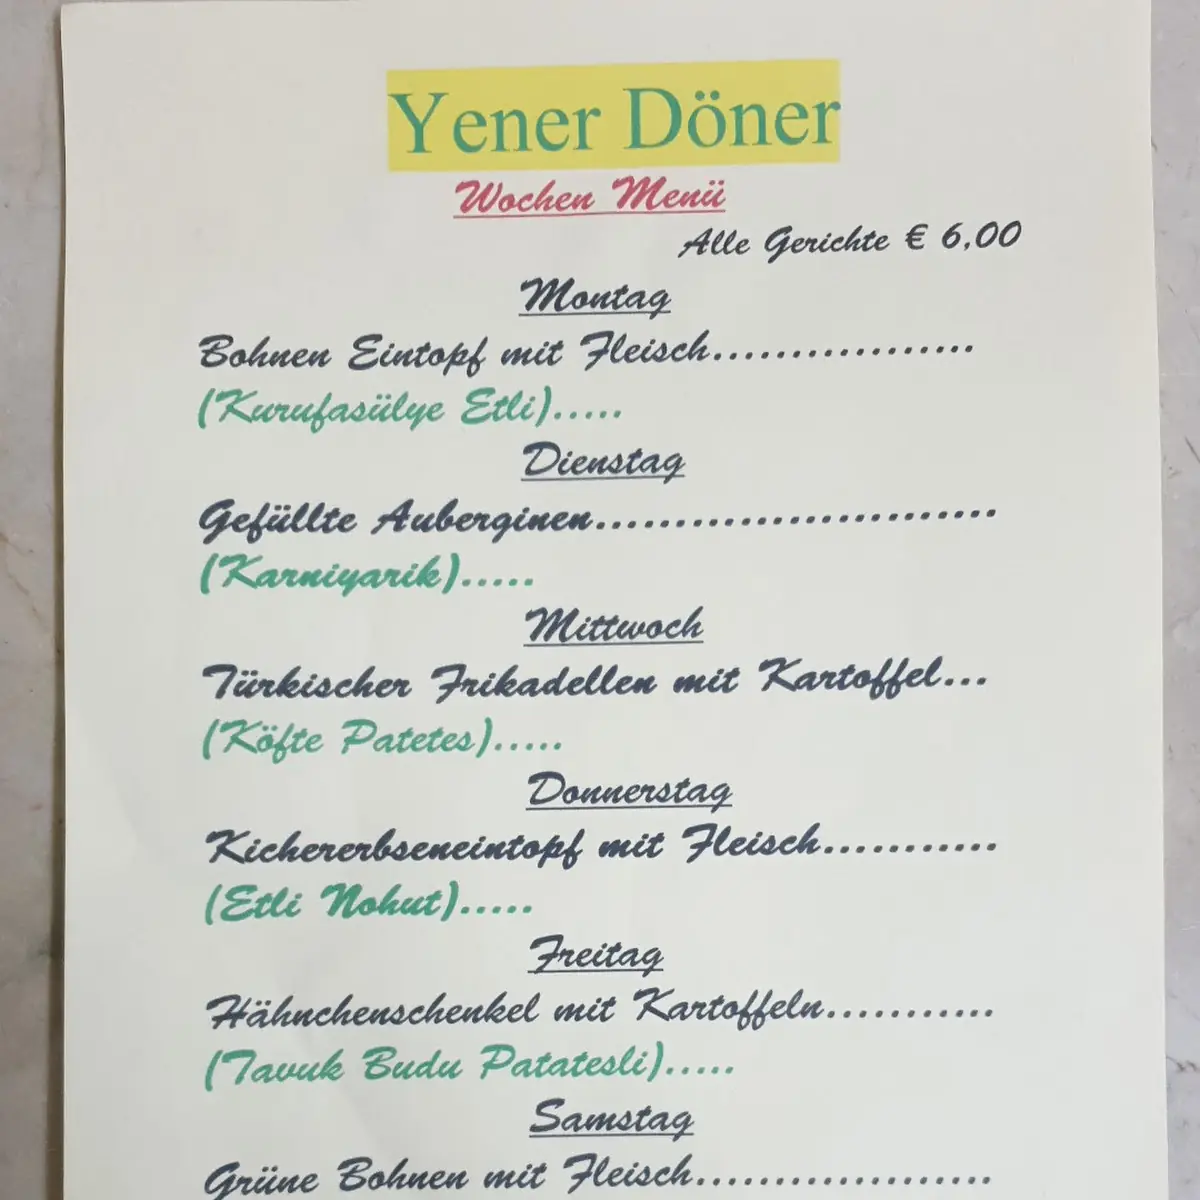 Yener Döner
Wochen Menü
Alle Gerichte € 6,00
Montag
Bohnen Eintopf mit Fleisch.................
(Kurufasülye Etli).....
Dienstag
Gefüllte Auberginen..........................
(Karniyarik).....
Mittwoch
Türkischer Frikadellen mit Kartoffel...
(Köfte Patetes).....
Donnerstag
Kichererbseneintopf mit Fleisch...........
(Etli Nohut).....
Freitag
Hähnchenschenkel mit Kartoffeln...........
(Tavuk Budu Patatesli).....
Samstag
Grüne Bohnen mit Fleisch...................